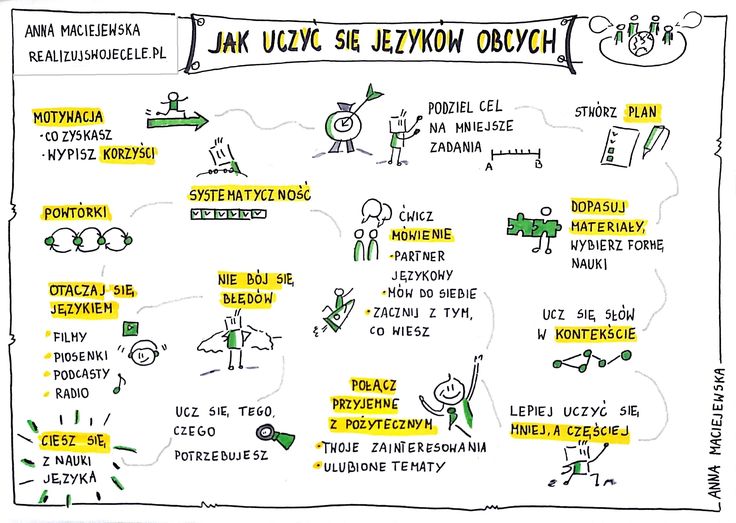 ANNA MACIEJEWSKA
REALIZUJSWOJECELE.PL
JAK UCZYĆ SIĘ JĘZYKÓW OBCYCH
MOTYWACJA
• CO ZYSKASZ
• WYPISZ KORZYŚCI
PODZIEL CEL
NA MNIEJSZE
ZADANIA
A B
STWÓRZ PLAN
DOPASUJ
MATERIAŁY,
WYBIERZ FORMĘ
NAUKI
ĆWICZ
MÓWIENIE
• PARTNER
JĘZYKOWY
• MÓW DO SIEBIE
• ZACZNIJ Z TYM,
CO WIESZ
SYSTEMATYCZNOŚĆ
POWTÓRKI
OTACZAJ SIĘ
JĘZYKIEM
• FILMY
• PIOSENKI
• PODCASTY
• RADIO
NIE BÓJ SIĘ
BŁĘDÓW
UCZ SIĘ SŁÓW
W KONTEKŚCIE
LEPIEJ UCZYĆ SIĘ
MNIEJ, A CZĘŚCIEJ
POŁĄCZ
PRZYJEMNE
Z POŻYTECZNYM
• TWOJE ZAINTERESOWANIA
• ULUBIONE TEMATY
UCZ SIĘ TEGO,
CZEGO
POTRZEBUJESZ
CIESZ SIĘ
Z NAUKI
JĘZYKA
ANNA MACIEJEWSKA